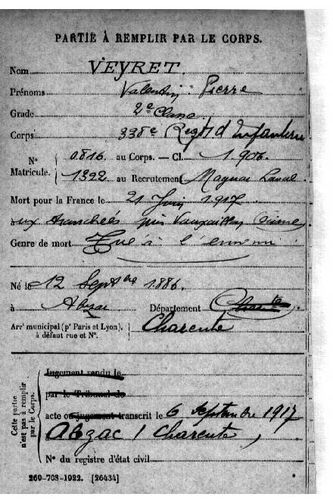 PARTIE À REMPLIR PAR LE CORPS.
Nom VEYRET.
Prénoms Valentin Pierre
Grade 2e Classe
Corps 338e Regt d'Infanterie
N° 0816 au Corps. — Cl. 1906
Matricule. 1322 au Recrutement Magnac Laval
Mort pour la France le 21 Juin 1917
aux tranchées près Vauxaillon (Aisne)
Genre de mort Tué à l'ennemi
Né le 12 Septbre 1886.
à Abzac Département Charente
Arrt municipal (pr Paris et Lyon), à défaut rue et N°. Charente
Cette partie n'est pas à remplir par le Corps.
Jugement rendu le
par le Tribunal de
acte ou jugement transcrit le 6 Septembre 1917
Abzac / Charente
N° du registre d'état civil
269-708-1922. [26434]